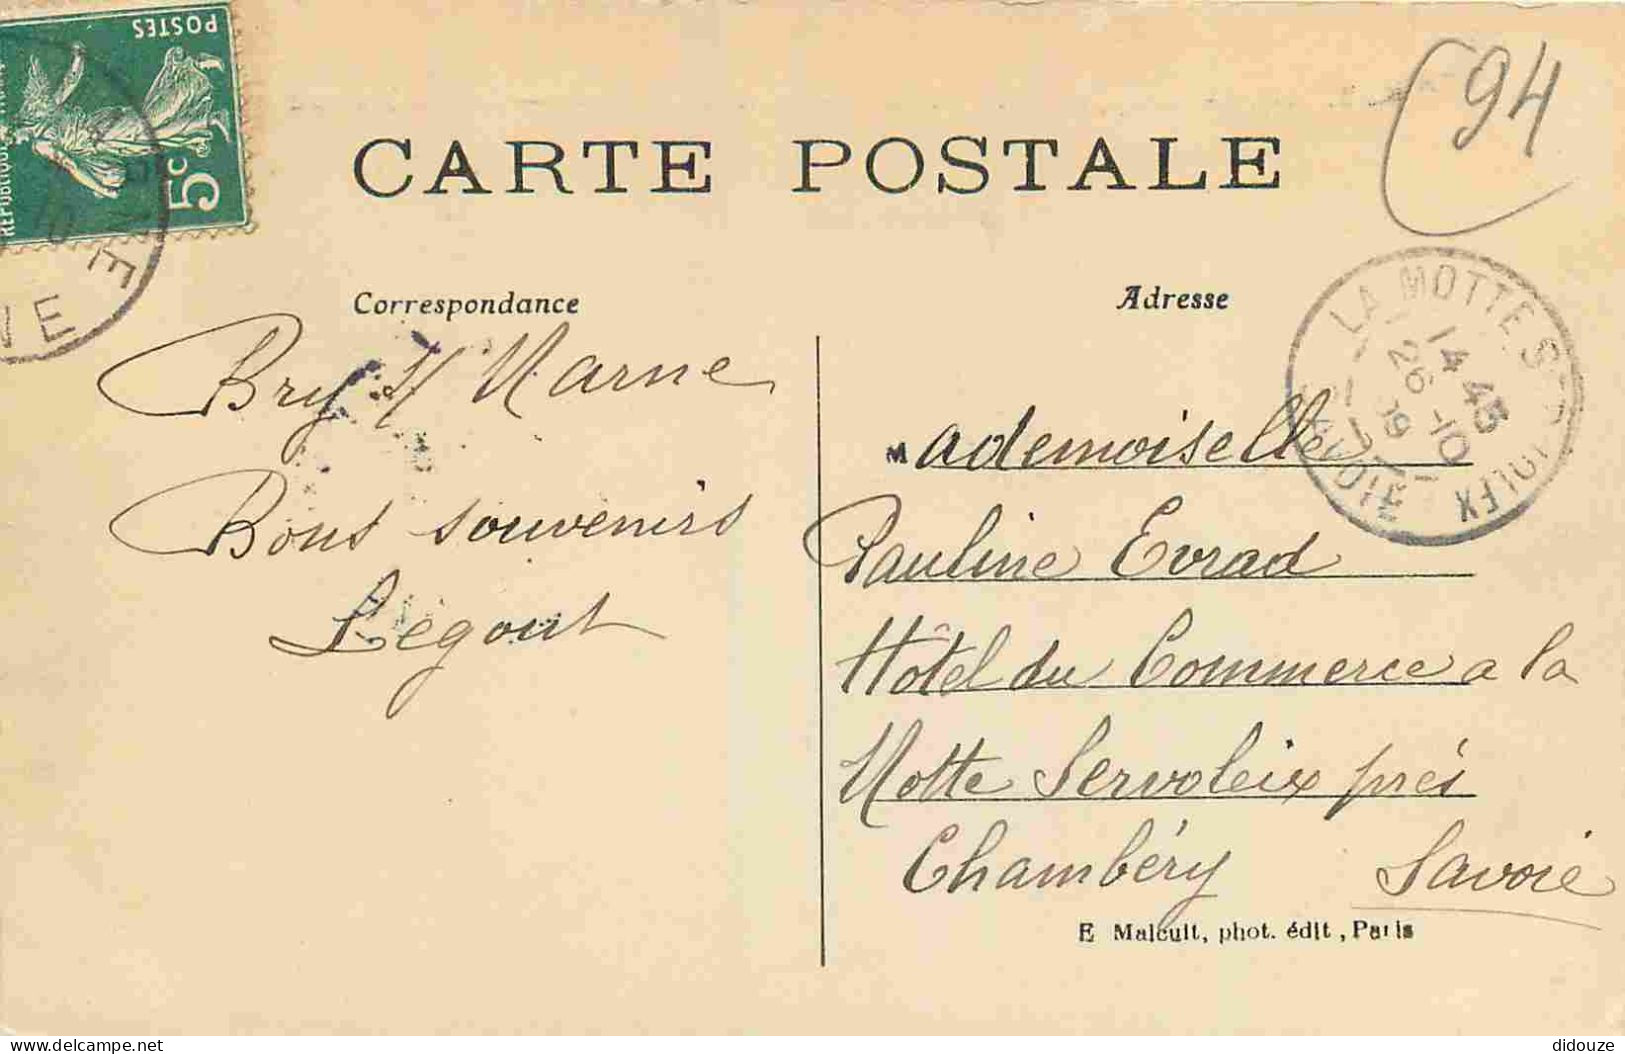 POSTES
5c
94
CARTE POSTALE
LA MOTTE
14 45
26 -10
19
Correspondance
Adresse
Bry s/ Marne
Bons souvenirs
Legout
Mademoiselle
Pauline Evrad
Hôtel du Commerce a la
Motte Servoleix près
Chambéry Savoie
E Malcuit, phot. édit, Paris
delcampe.net
didouze